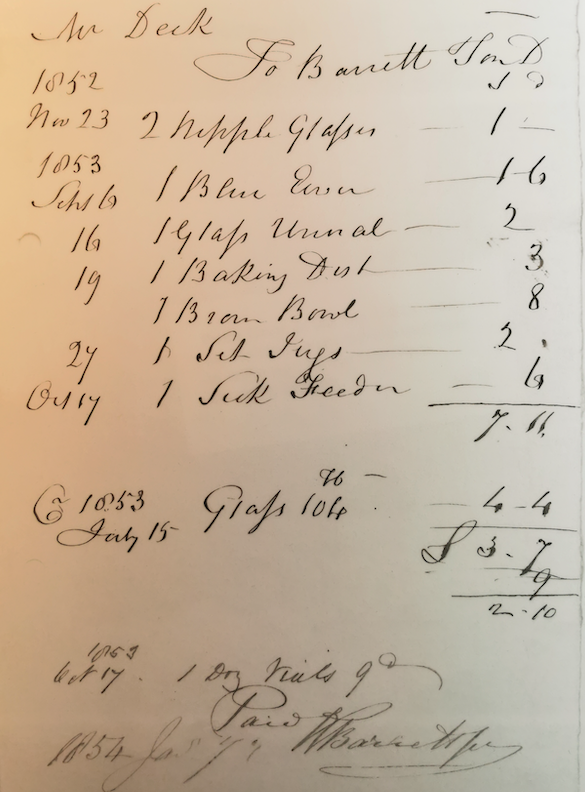 Mr Deck
To Barrett Son D
1852 s d
Nov 23 2 Nipple Glasses — 1 —
1853
Sept 6 1 Blue Ewer — 1-6
16 1 Glass Urinal — 2
19 1 Baking Dish — 3
1 Brown Bowl — 8
27 1 Set Jugs — 2 .
Oct 17 1 Sick Feeder — 6
7 - 11
lb
Cr 1853 Glass 104 — 4-4
July 15
3 - 7
9
2-10
1853
Oct 17 . 1 Doz Vials 9d
Paid
1854 Jan 7 Barrett Jr